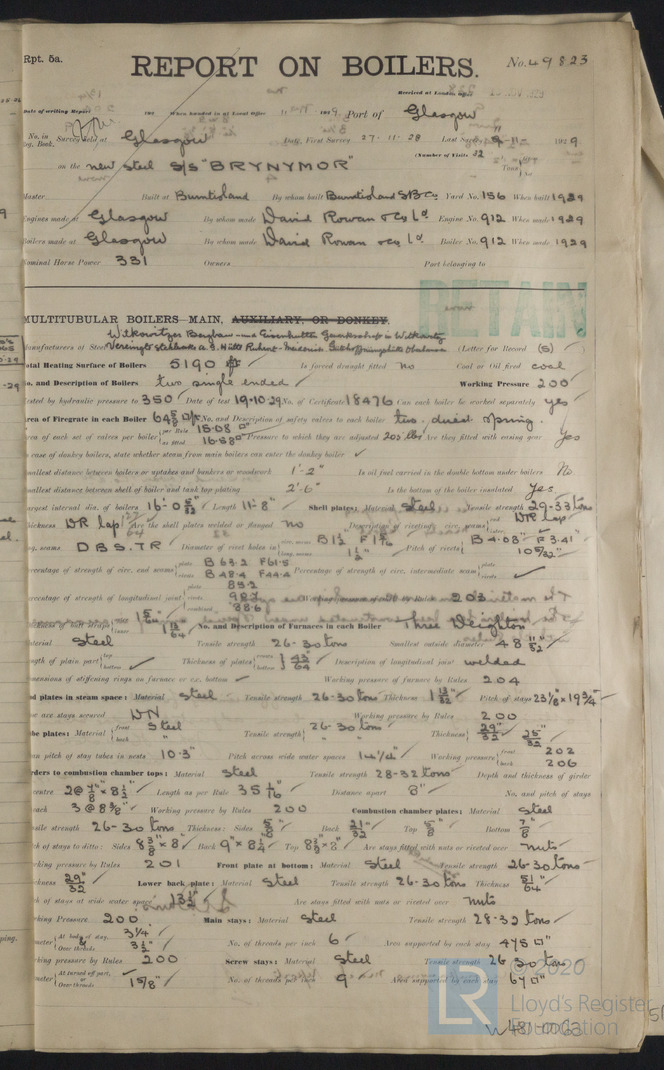 Rpt. 5a.
REPORT ON BOILERS.
No. 49823
Received at London Office
Date of writing Report 192 When handed in at Local Office 192 9. Port of Glasgow
No. in Survey held at Glasgow Date, First Survey 27-11-28 Last Survey 9-11- 1929
Reg. Book.
(Number of Visits 32
on the new steel S/S "BRYNYMOR" Tons
Master Built at Burntisland By whom built Burntisland S.B. Co. Yard No. 156 When built 1929
Engines made at Glasgow By whom made David Rowan & Co Ld Engine No. 912 When made 1929
Boilers made at Glasgow By whom made David Rowan & Co Ld Boiler No. 912 When made 1929
Nominal Horse Power 331 Owners Port belonging to
RETAIN
MULTITUBULAR BOILERS—MAIN, AUXILIARY, OR DONKEY.
Manufacturers of Steel (Letter for Record (S)
Total Heating Surface of Boilers 5190 Is forced draught fitted No Coal or Oil fired coal
No. and Description of Boilers two single ended Working Pressure 200
Tested by hydraulic pressure to 350 Date of test 19.10.29 No. of Certificate 18476 Can each boiler be worked separately yes
Area of Firegrate in each Boiler 64 5/8 No. and Description of safety valves to each boiler two, direct spring.
Area of each set of valves per boiler per Rule 15.08 as fitted 16.580 Pressure to which they are adjusted 205 lbs Are they fitted with easing gear Yes
In case of donkey boilers, state whether steam from main boilers can enter the donkey boiler
Smallest distance between boilers or uptakes and bunkers or woodwork 1'-2" Is oil fuel carried in the double bottom under boilers No
Smallest distance between shell of boiler and tank top plating 2'-6" Is the bottom of the boiler insulated Yes
Largest internal dia. of boilers 16'-0 5/32 Length 11'-8" Shell plates: Material Steel Tensile strength 29-33 tons
Thickness Are the shell plates welded or flanged no Description of riveting: circ. seams end DR lap
long. seams D B S. T R Diameter of rivet holes in circ. seams long. seams 1 1/2" Pitch of rivets B 4.03" F 3.41" 10 5/32"
Percentage of strength of circ. end seams plate B 63.2 F 61.5 rivets B 48.4 F 44.4 Percentage of strength of circ. intermediate seam plate rivets
Percentage of strength of longitudinal joint plate rivets combined 88.6 203
No. and Description of Furnaces in each Boiler Three Deighton
Material Steel Tensile strength 26-30 tons Smallest outside diameter
Length of plain part top bottom Thickness of plates crown bottom 43/64 Description of longitudinal joint welded
Dimensions of stiffening rings on furnace or c.c. bottom Working pressure of furnace by Rules 204
End plates in steam space: Material Steel Tensile strength 26-30 tons Thickness 1 13/32" Pitch of stays 23 1/8 x 19 3/4
How are stays secured DN Working pressure by Rules 200
Tube plates: Material front back Steel Tensile strength 26-30 tons Thickness 29/32 25/32
Mean pitch of stay tubes in nests 10.3" Pitch across wide water spaces 14 1/4" Working pressure front 202 back 206
Girders to combustion chamber tops: Material Steel Tensile strength 28-32 tons Depth and thickness of girder
at centre 2@ 7/8" x 8 1/2" Length as per Rule 35 1/16" Distance apart 8" No. and pitch of stays
in each 3 @ 8 3/8" Working pressure by Rules 200 Combustion chamber plates: Material Steel
Tensile strength 26-30 tons Thickness: Sides 5/8" Back 21/32" Top 5/8" Bottom 7/8"
Pitch of stays to ditto: Sides 8 3/8" x 8" Back 9" x 8 1/4" Top 8 3/8" x 8" Are stays fitted with nuts or riveted over nuts
Working pressure by Rules 201 Front plate at bottom: Material Steel Tensile strength 26-30 tons
Thickness 29/32 Lower back plate: Material Steel Tensile strength 26-30 tons Thickness 51/64
Pitch of stays at wide water space 13 1/2" Are stays fitted with nuts or riveted over nuts
Working Pressure 200 Main stays: Material Steel Tensile strength 28-32 tons
Diameter At body of stay, 3 1/4" Over threads 3 1/2" No. of threads per inch 6 Area supported by each stay 475
Working pressure by Rules 200 Screw stays: Material Steel Tensile strength 26-30 tons
Diameter At turned off part, Over threads 1 5/8" No. of threads per inch 9 Area supported by each stay 67
© 2020
LR
Lloyd's Register
Foundation
W481-0063